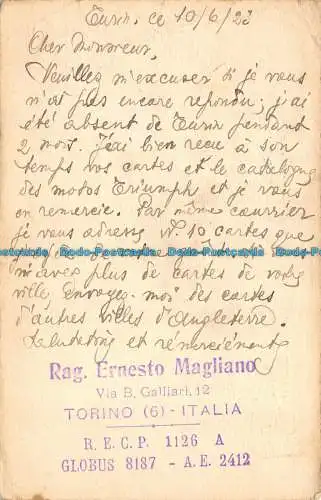 Turin, ce 10/6/23
Cher Monsieur,
Veuillez m'excuser si je vous
n'ai pas encore repondu; j'ai
été absent de Turin pendant
2 mois. J'ai bien reçu à son
temps vos cartes et le catalogue
des motos Triumph et je vous
en remercie. Par même courrier
je vous adresse 10 cartes que
m'avez plus de cartes de votre
ville, envoyez-moi des cartes
d'autres villes d'Angleterre.
et remerciements
Rag. Ernesto Magliano
Via B. Galliari, 12
TORINO (6) - ITALIA
R. E. C. P. 1126 A
GLOBUS 8187 - A. E. 2412